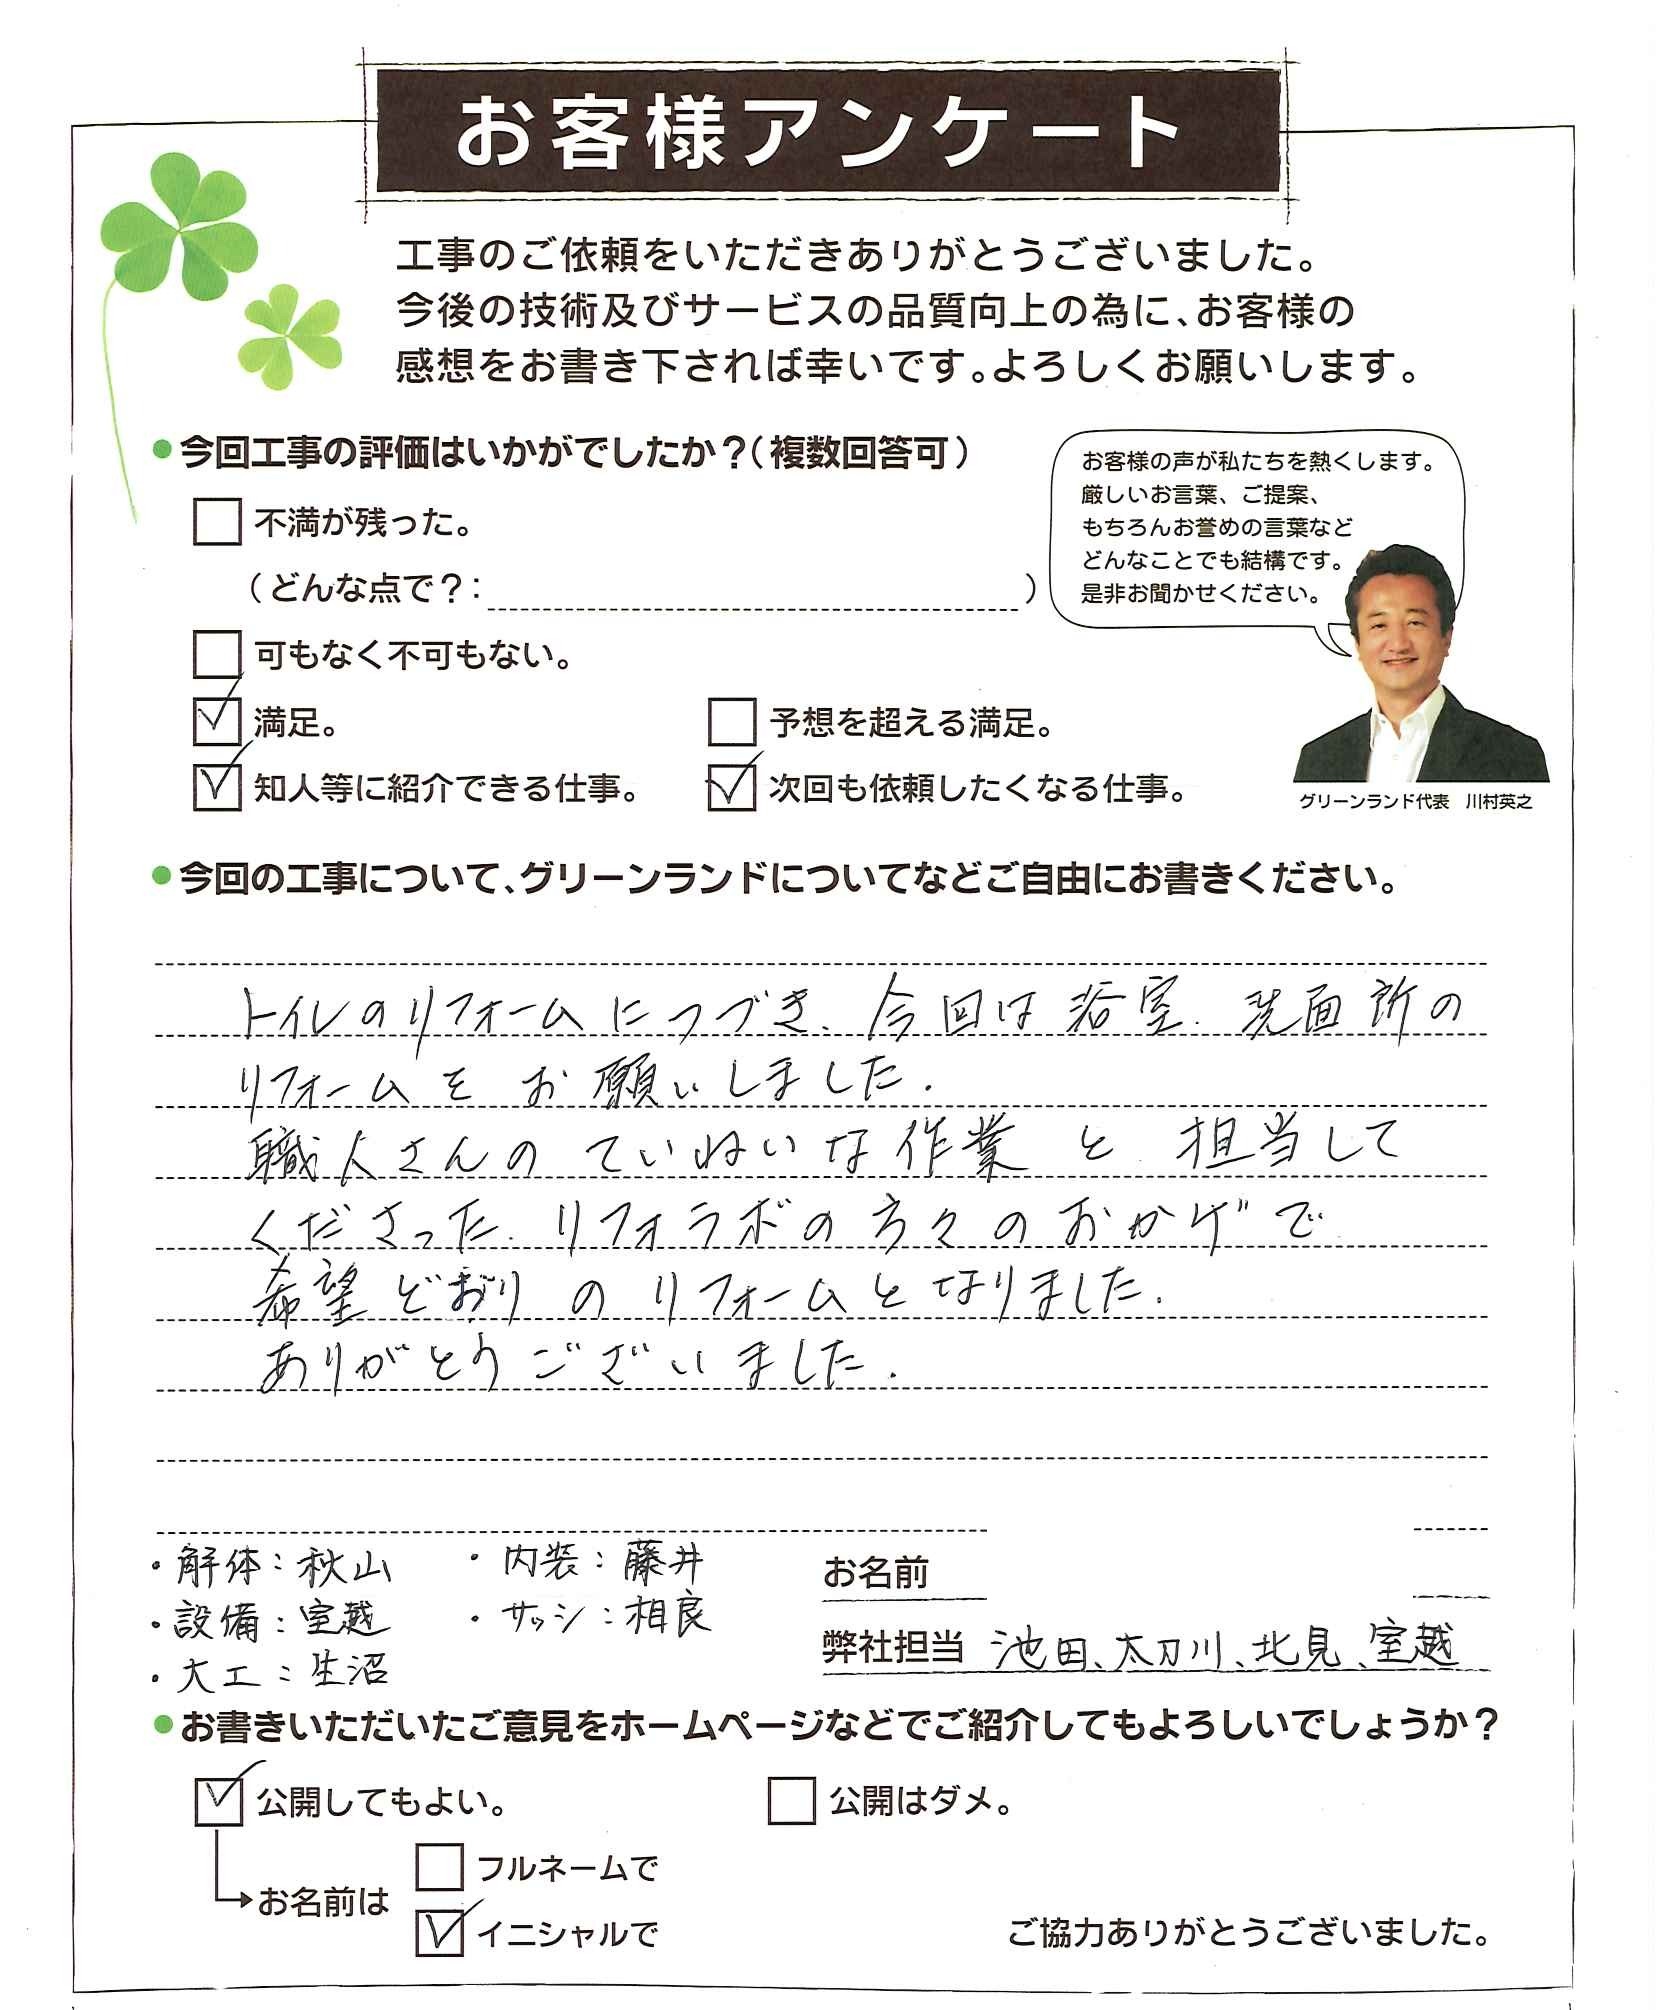 お客様アンケート
工事のご依頼をいただきありがとうございました。
今後の技術及びサービスの品質向上の為に、お客様の
感想をお書き下されば幸いです。よろしくお願いします。
●今回工事の評価はいかがでしたか?(複数回答可)
不満が残った。
(どんな点で?: )
可もなく不可もない。
満足。
予想を超える満足。
知人等に紹介できる仕事。
次回も依頼したくなる仕事。
お客様の声が私たちを熱くします。
厳しいお言葉、ご提案、
もちろんお誉めの言葉など
どんなことでも結構です。
是非お聞かせください。
グリーンランド代表 川村英之
●今回の工事について、グリーンランドについてなどご自由にお書きください。
トイレのリフォームにつづき、今回は浴室、洗面所の
リフォームをお願いしました.
職人さんのていねいな作業と担当して
くださった、リフォラボの方々のおかげで
希望どおりのリフォームとなりました.
ありがとうございました.
・解体:秋山 ・内装:藤井
・設備:室越 ・サッシ:相良
・大工:生沼
お名前
弊社担当 池田、太刀川、北見、室越
●お書きいただいたご意見をホームページなどでご紹介してもよろしいでしょうか?
公開してもよい。
公開はダメ。
お名前は
フルネームで
イニシャルで
ご協力ありがとうございました。